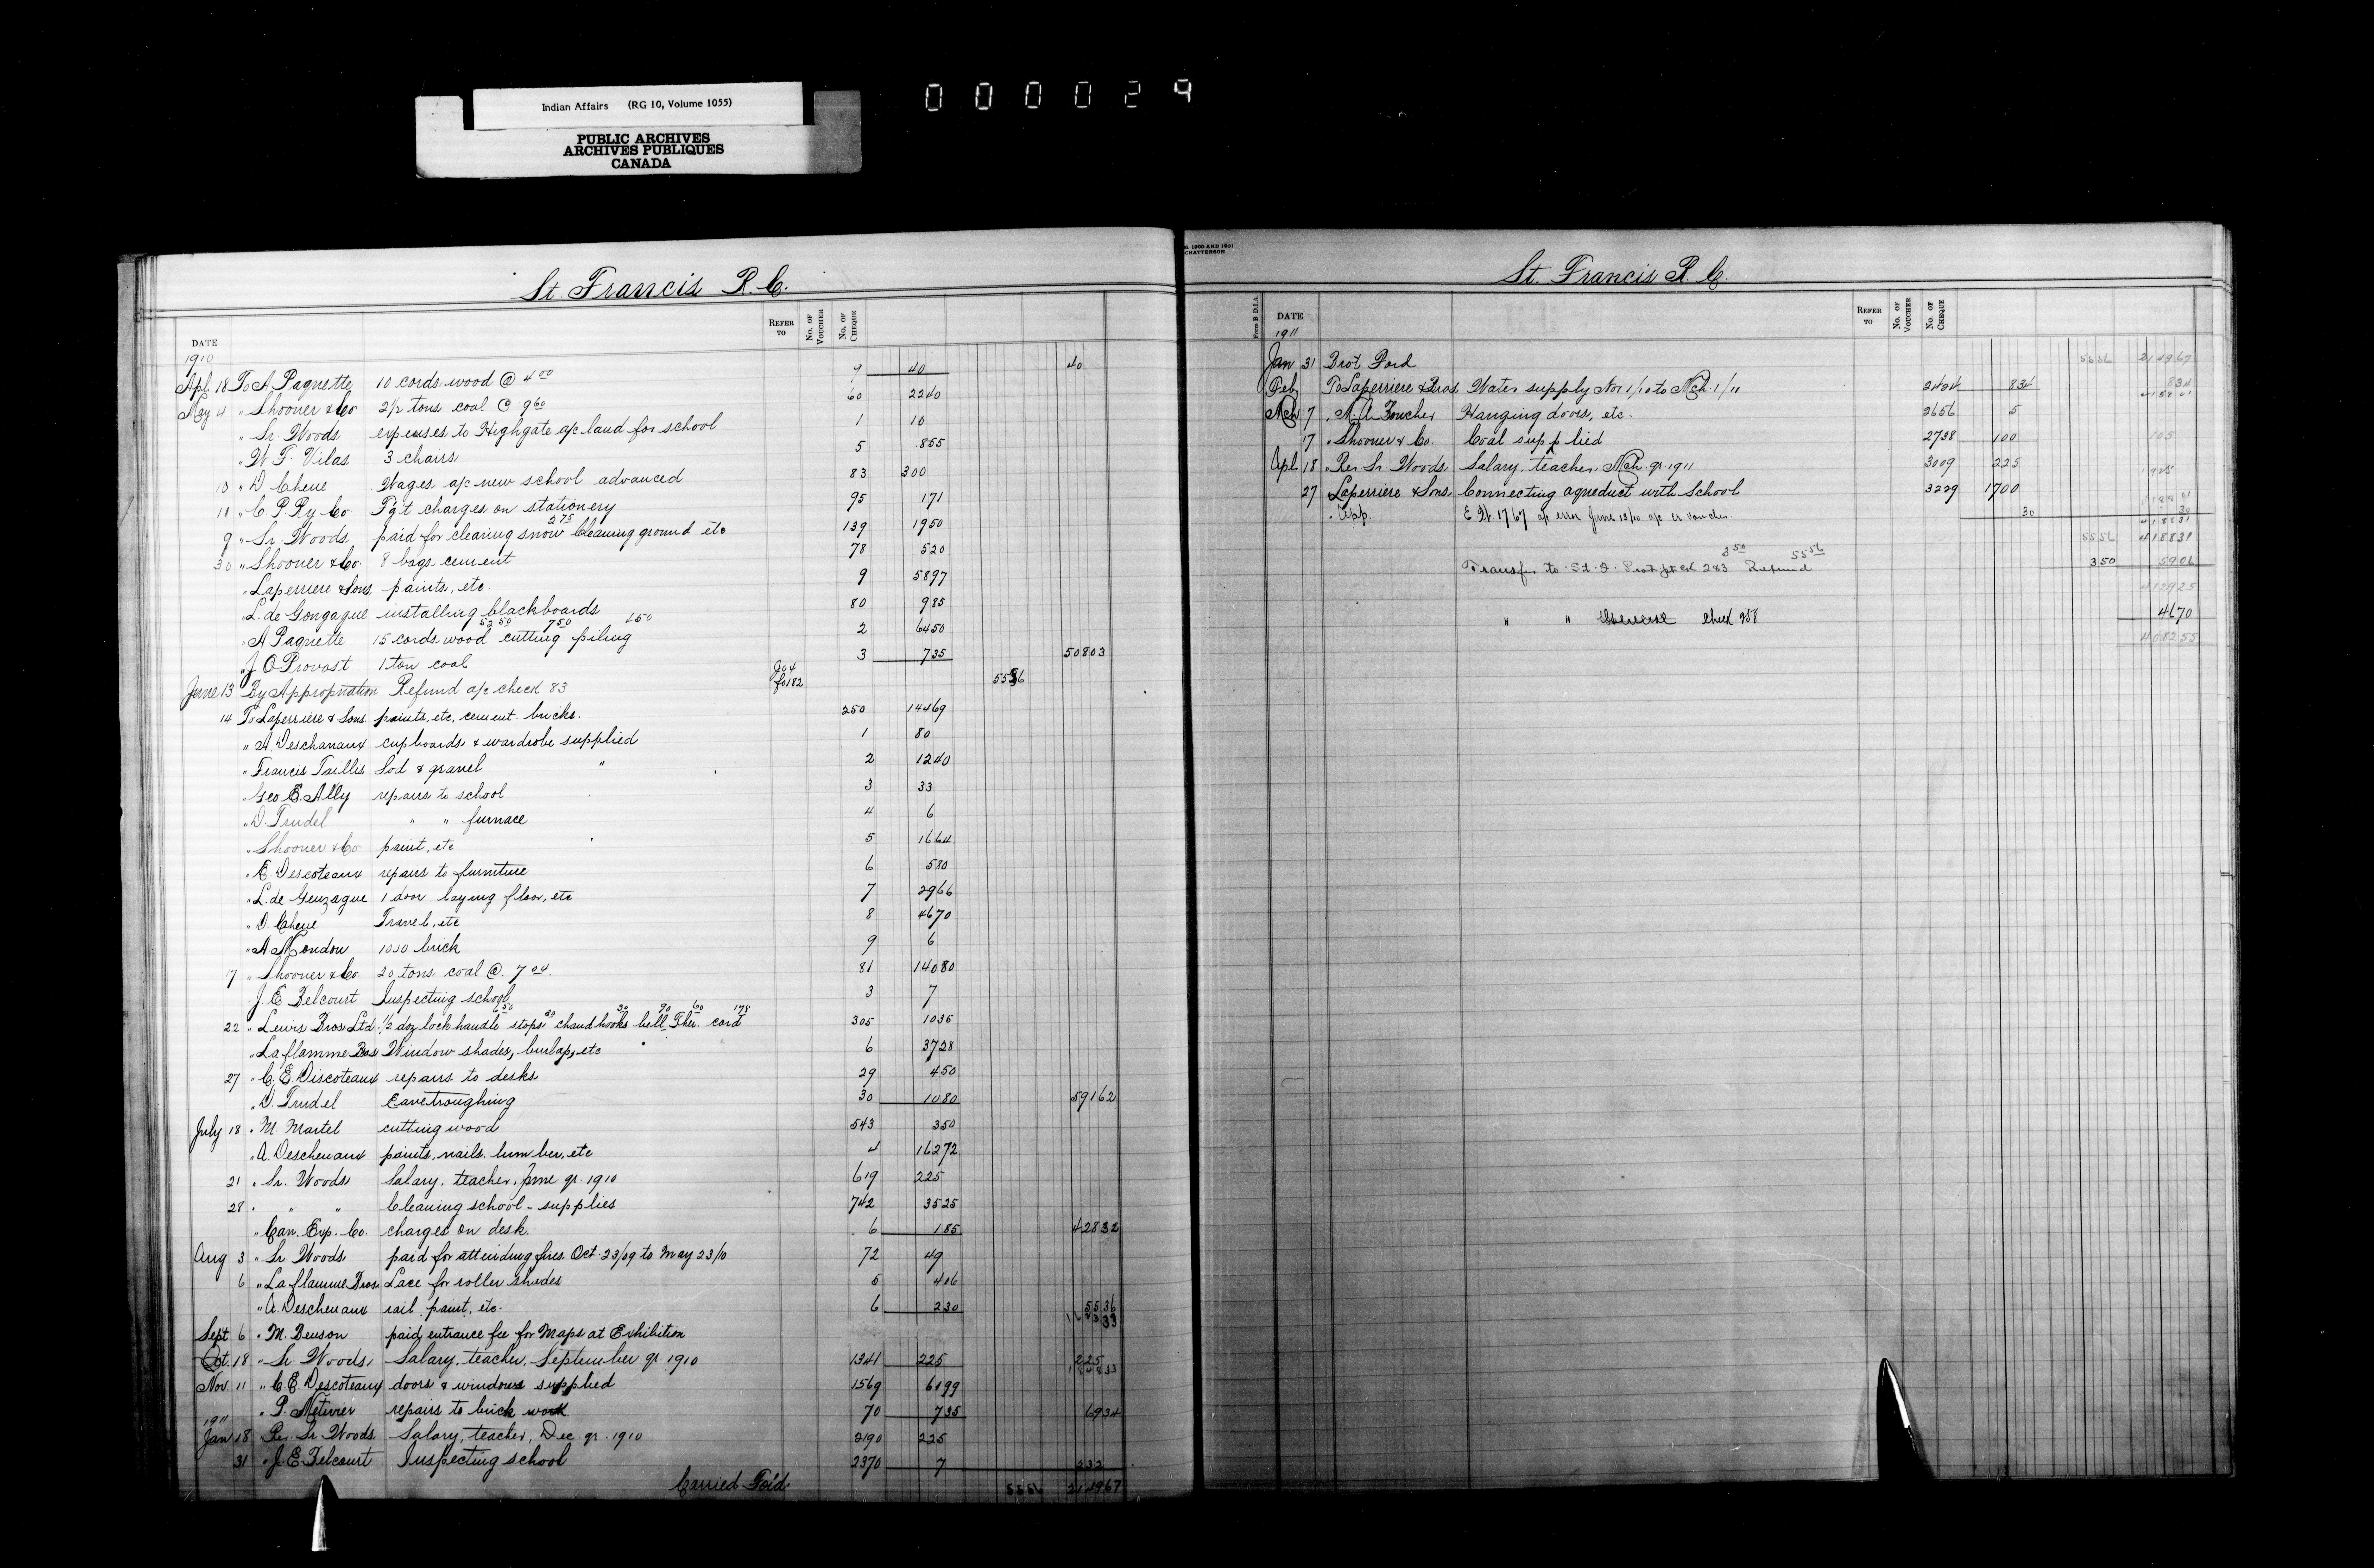 Indian Affairs (RG 10, Volume 1055)
PUBLIC ARCHIVES
ARCHIVES PUBLIQUES
CANADA
000029
St. Francis R. C.
DATE REFER TO NO. OF VOUCHER NO. OF CHEQUE
1910
Apl 18 To A Paquette 10 cords wood @ 4 00 9 40 40
May 4 " Shooner & Co 2 1/2 tons coal @ 9 60 60 22 40
" Sr. Woods expenses to Highgate a/c land for school 1 10
" W. F. Vilas 3 chairs 5 8 55
13 " D Chene Wages a/c new school advanced 83 300
11 " C P Ry Co Fg't charges on stationery 95 1 71
9 " Sr. Woods paid for clearing snow 2 75 cleaning ground etc 139 19 50
30 " Shooner & Co. 8 bags cement 78 5 20
" Laperriere & Sons paints, etc. 9 58 97
" L. de Gongague installing blackboards 80 9 85
" A Paquette 15 cords wood 52 50 cutting 7 50 piling 4 50 2 64 50
" J O Provost 1 ton coal 3 7 35 508 03
June 13 By Appropriation Refund a/c check 83 Jo 4 fo 182 55 56
14 To Laperriere & Sons paints, etc, cement. bricks. 250 144 69
" A. Deschanaux cupboards & wardrobe supplied 1 80
" Francis Taillis Sod & gravel " 2 12 40
" Geo E. Ally repairs to school 3 33
" D. Trudel " " furnace 4 6
" Shooner & Co paint, etc 5 16 64
" E. Descoteaux repairs to furniture 6 5 80
" L. de Gonzague 1 door laying floor, etc 7 29 66
" D. Chene Travel, etc 8 46 70
" A Mondou 1000 brick 9 6
17 " Shooner & Co. 20 tons coal @ 7 04. 81 140 80
J. E Belcourt Inspecting school 3 7
22 " Lewis Bros Ltd 1/2 doz lock handle stops chand hooks 30 bell 90 Ther. 60 cord 175 305 10 35
" Laflamme Bros Window shades, burlap, etc 6 37 28
27 " C. E Discoteaux repairs to desks 29 4 50
" D. Trudel Eavetroughing 30 10 80 591 62
July 18 " M. Martel cutting wood 543 3 50
" A. Deschenaux paints, nails, lumber, etc 4 162 72
21 " Sr. Woods Salary, teacher, June qr. 1910 619 225
28 " " " Cleaning school - supplies 742 35 25
" Can. Exp. Co. charges on desk. 6 1 85 428 32
Aug 3 " Sr Woods paid for attending fires Oct. 23/09 to May 23/10 72 49
6 " Laflamme Bros. Lace for roller shades 5 4 06
" A. Deschenaux rail, paint, etc. 6 2 30 55 36
Sept 6 " M. Benson paid entrance fee for Maps at Exhibition
Oct. 18 " Sr. Woods, Salary, teacher, September qr. 1910 1341 225 225
Nov. 11 " C. E. Descoteaux doors & windows supplied 1569 61 99
" P. Metivier repairs to brick work 70 7 35 69 34
1911
Jan 18 Rev Sr Woods Salary, teacher, Dec. qr. 1910 2190 225
31 " J. E. Belcourt Inspecting school 2370 7 232
Carried For'd 55 56 2149 67
S, 1900 AND 1901
CHATTERSON
St. Francis R C.
Form B D.I.A. DATE REFER TO NO. OF VOUCHER NO. OF CHEQUE
1911
Jan 31 Brot Ford 55 56 2149 67
Feb To Laperriere & Bros. Water supply Nov 1/10 to Mch 1/11 2424 8 34 8 34
Mch 7 " M. A. Foucher Hanging doors, etc. 2656 5
17 " Shooner & Co. Coal supplied 2738 100 105
Apl 18 " Rev. Sr. Woods Salary, teacher, Mch. qr. 1911 3009 225
27 Laperriere & Sons Connecting aqueduct with School 3229 1700
" App. E. W. 1767 a/c error June 13/10 30 30
55 56 4188 31
Transfer to St. F. Prot 3 50 Refund 55 56 3 50 59 06
4129 25
" " General Check 958 46 70
4082 55